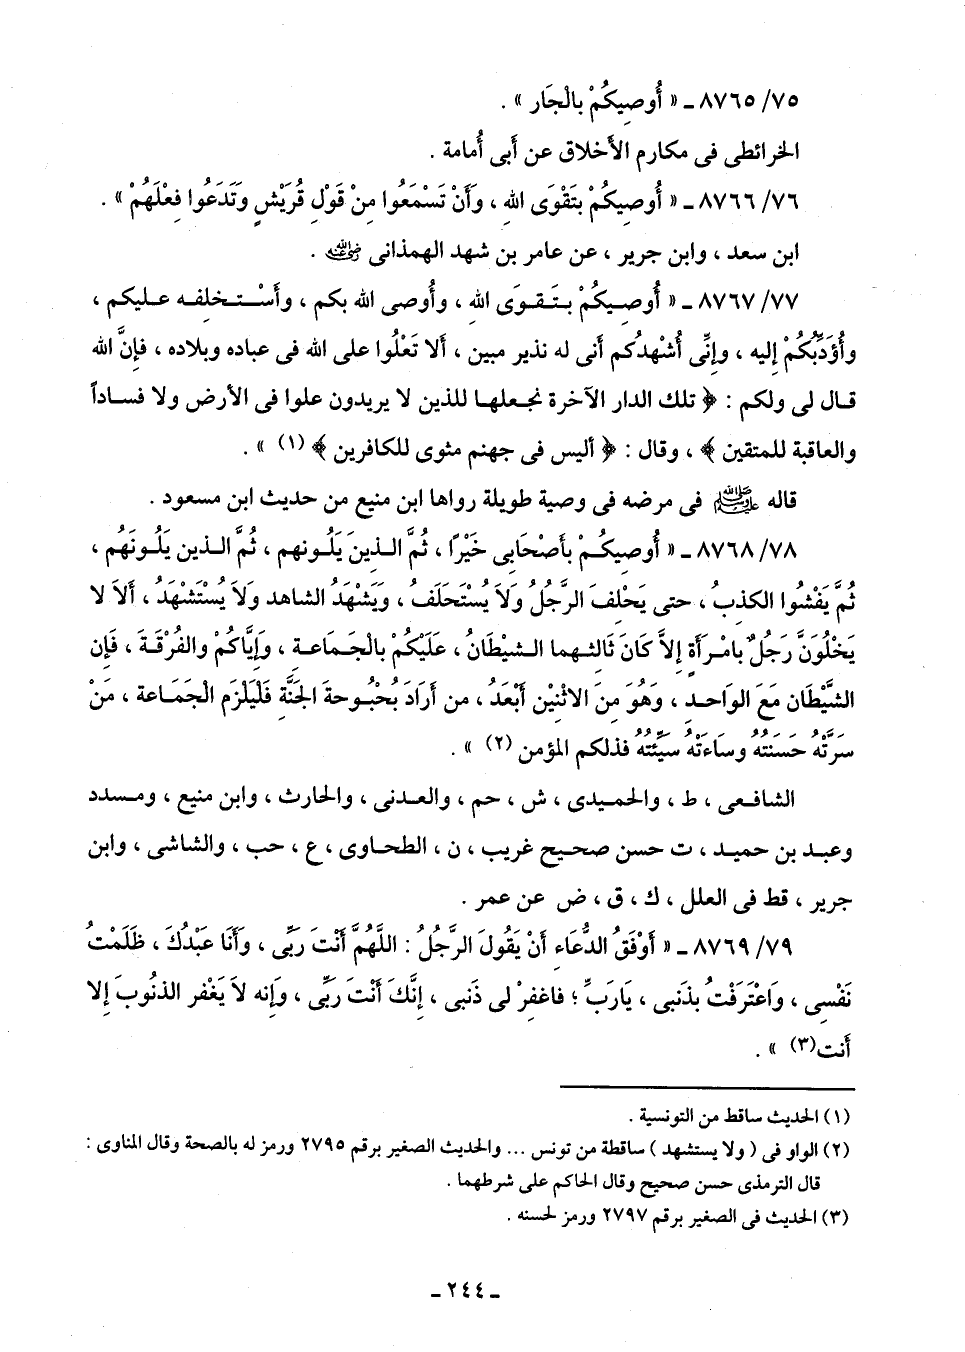 ٧٥/ ٨٧٦٥ ـ « أُوصِيكُمْ بالْجَار » .
الخرائطى فى مكارم الأخلاق عن أبى أُمامة .
٧٦/ ٨٧٦٦ ـ « أُوصِيكُمْ بتَقْوَى اللهِ ، وَأَنْ تَسْمَعُوا مِنْ قَوْلِ قُرَيْشٍ وَتَدَعُوا فِعْلَهُمْ » .
ابن سعد ، وابن جرير ، عن عامر بن شهد الهمذانى رضي الله عنه .
٧٧/ ٨٧٦٧ ـ « أُوصِيكُمْ بتَقوَى اللهِ ، وأُوصى الله بكم ، وأسْتخلفه عليكم ،
وأُؤَدِّبُكُمْ إليه ، وإنِّى أُشْهدُكم أنى له نذير مبين ، ألا تَعْلُوا على الله فى عباده وبلاده ، فإنَّ الله
قال لى ولكم : ﴿ تلك الدار الآخرة نجعلها للذين لا يريدون علوا فى الأرض ولا فساداً
والعاقبة للمتقين ﴾ ، وقال : ﴿ أليس فى جهنم مثوى للكافرين ﴾ (١) » .
قاله ﷺ فى مرضه فى وصية طويلة رواها ابن منيع من حديث ابن مسعود .
٧٨/ ٨٧٦٨ ـ « أُوصِيكُمْ بأَصْحَابى خَيْرًا ، ثُمَّ الذينَ يَلُونهم ، ثُمَّ الذين يَلُونَهُم ،
ثُمَّ يَفْشُوا الكذبُ ، حتى يَحْلفَ الرَّجُلُ وَلاَ يُسْتَحلَفُ ، وَيَشْهَدُ الشاهد ولاَ يُسْتَشْهَدُ ، ألاَ لا
يَخْلُوَنَّ رَجُلٌ بامْرَأَةٍ إلاَّ كَانَ ثَالثهما الشيْطَانُ ، عَلَيْكُمْ بالْجَمَاعة ، وَإيَّاكُمْ والفُرْقَةَ ، فَإن
الشَّيْطَان مَعَ الوَاحدِ ، وَهُوَ مِنَ الاثْنيْنِ أبْعَدُ ، من أَرَادَ بُحْبُوحةَ الجَنَّة فَلْيَلْزَمِ الْجَمَاعة ، مَنْ
سَرَّتْهُ حَسَنَتُهُ وسَاءَتْهُ سَيِّئَتُهُ فذلكم المؤمن (٢) » .
الشافعى ، ط ، والحميدى ، ش ، حم ، والعدنى ، والحارث ، وابن منيع ، ومسدد
وعبد بن حميد ، ت حسن صحيح غريب ، ن ، الطحاوى ، ع ، حب ، والشاشى ، وابن
جرير ، قط فى العلل ، ك ، ق ، ض عن عمر .
٧٩/ ٨٧٦٩ ـ « أَوْفَقُ الدُّعَاءِ أنْ يَقُولَ الرَّجُلُ : اللَّهُمَّ أنْتَ رَبِّى ، وَأَنَا عَبْدُكَ ، ظَلَمْتُ
نَفْسِى ، وَاعْتَرَفْتُ بذَنبى ، يَارَبِّ ؛ فاغفِرْ لى ذَنبى ، إنَّكَ أَنْتَ رَبِّى ، وَإنه لاَ يَغْفر الذنُوبَ إلا
أَنت(٣) » .
(١) الحديث ساقط من التونسية .
(٢) الواو فى ( ولا يستشهد ) ساقطة من تونس ... والحديث الصغير برقم ٢٧٩٥ ورمز له بالصحة وقال المناوى :
قال الترمذى حسن صحيح وقال الحاكم على شرطهما .
(٣) الحديث فى الصغير برقم ٢٧٩٧ ورمز لحسنه .
ـ ٢٤٤ ـ